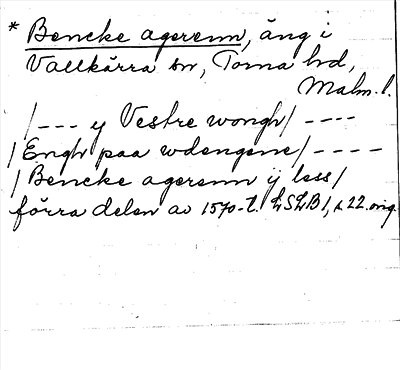 * Bencke agerenn, äng i
Vallkärra sn, Torna hd,
Malm. l.
/ --- y Vestre wongh / ----
/ Engh paa wdengene / ----
/ Bencke agerenn ij less /
förra delen av 1570-t. LSLB 1, s. 22. orig.